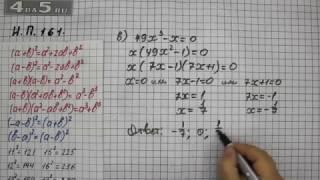 4 B A 5
И.П. 161.
(a+b)²=a²+2ab+b²
(a-b)²=a²-2ab+b²
(a+b)(a-b)=a²-b²
(a-b)(a²+ab+b²)=a³-b³
(a+b)(a²-ab+b²)=a³+b³
(-a-b)²=(a+b)²
(b-a)²=(a-b)²
11²=121 15²=225
12²=144 16²=256
в) 49x³-x=0
x(49x²-1)=0
x(7x-1)(7x+1)=0
x=0 или 7x-1=0 или 7x+1=0
7x=1 7x=-1
x=1/7 x=-1/7
Ответ: -1/7; 0; 1